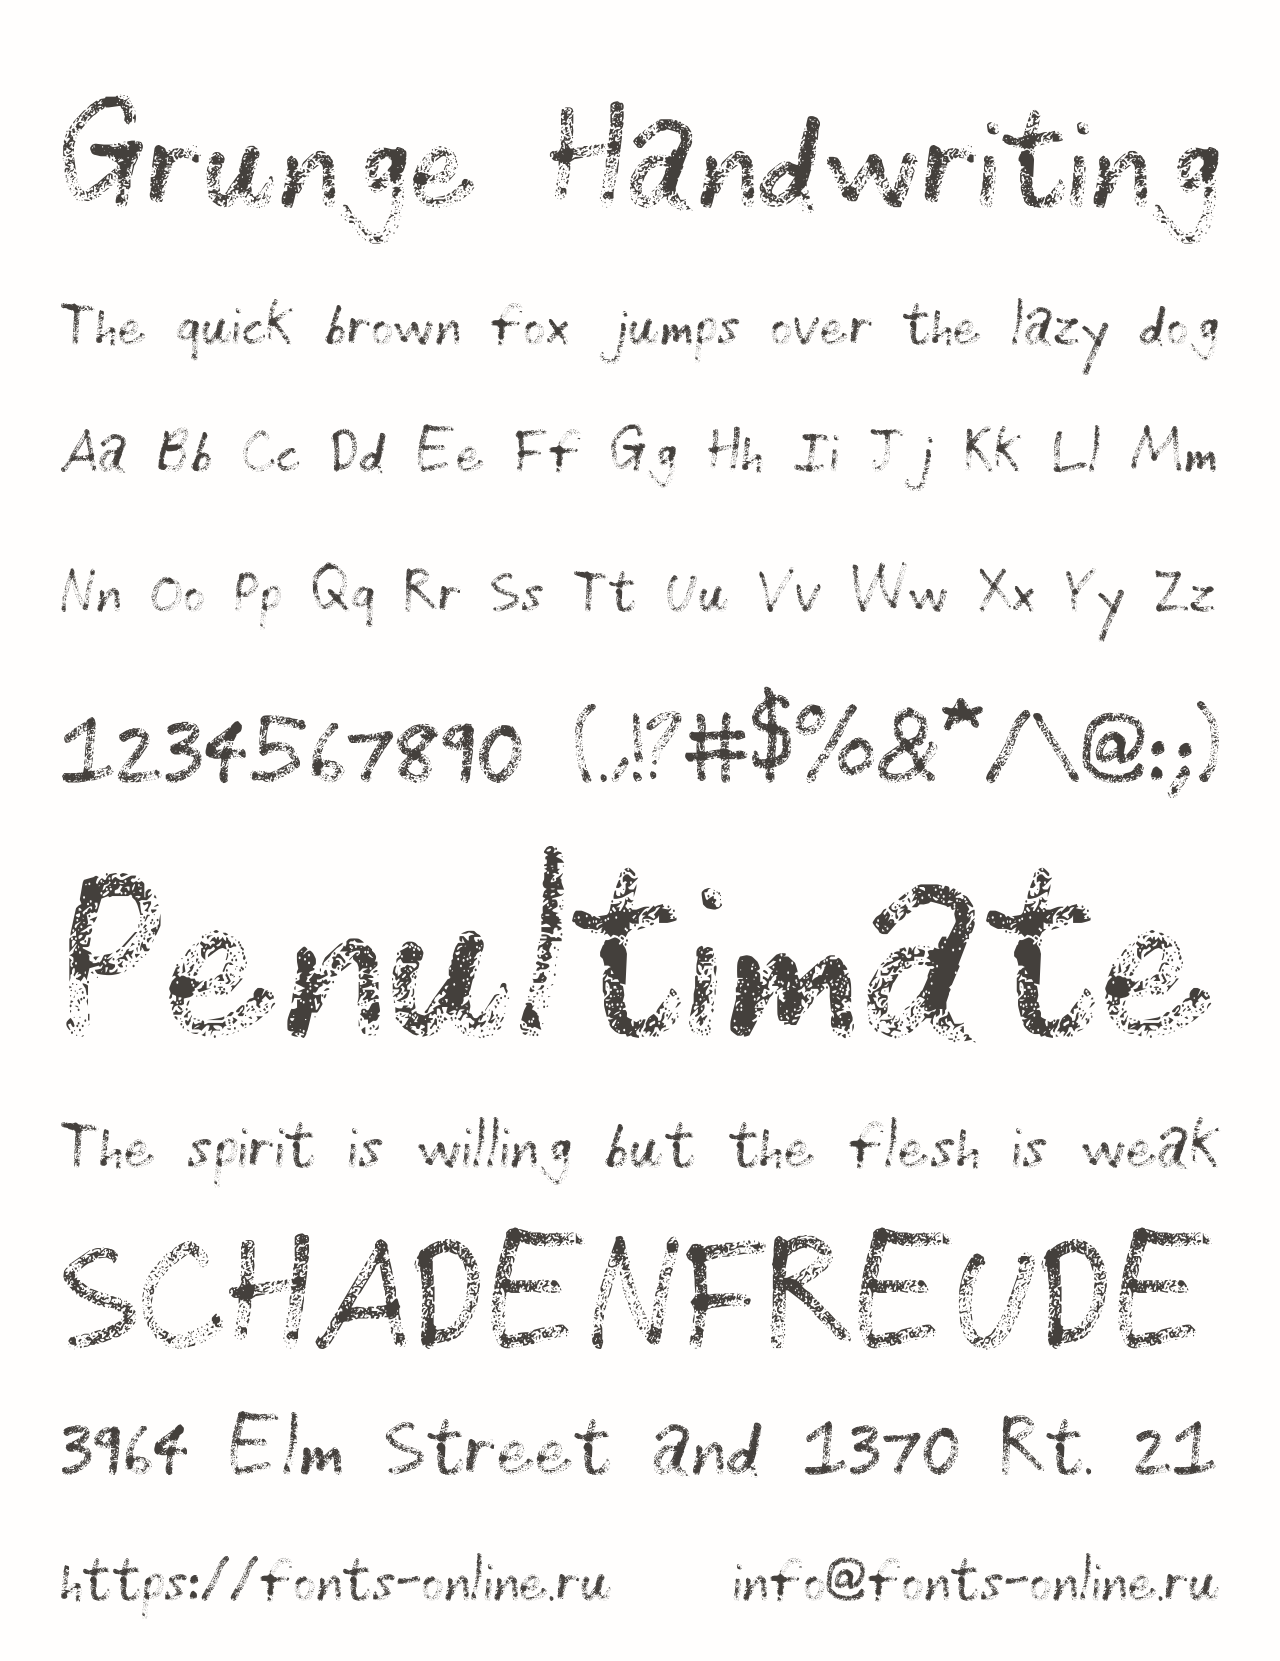 Grunge Handwriting
The quick brown fox jumps over the lazy dog
Aa Bb Cc Dd Ee Ff Gg Hh Ii Jj Kk Ll Mm
Nn Oo Pp Qq Rr Ss Tt Uu Vv Ww Xx Yy Zz
1234567890 (.,!?#$%&*/\@:;)
Penultimate
The spirit is willing but the flesh is weak
SCHADENFREUDE
3964 Elm Street and 1370 Rt. 21
https://fonts-online.ru info@fonts-online.ru